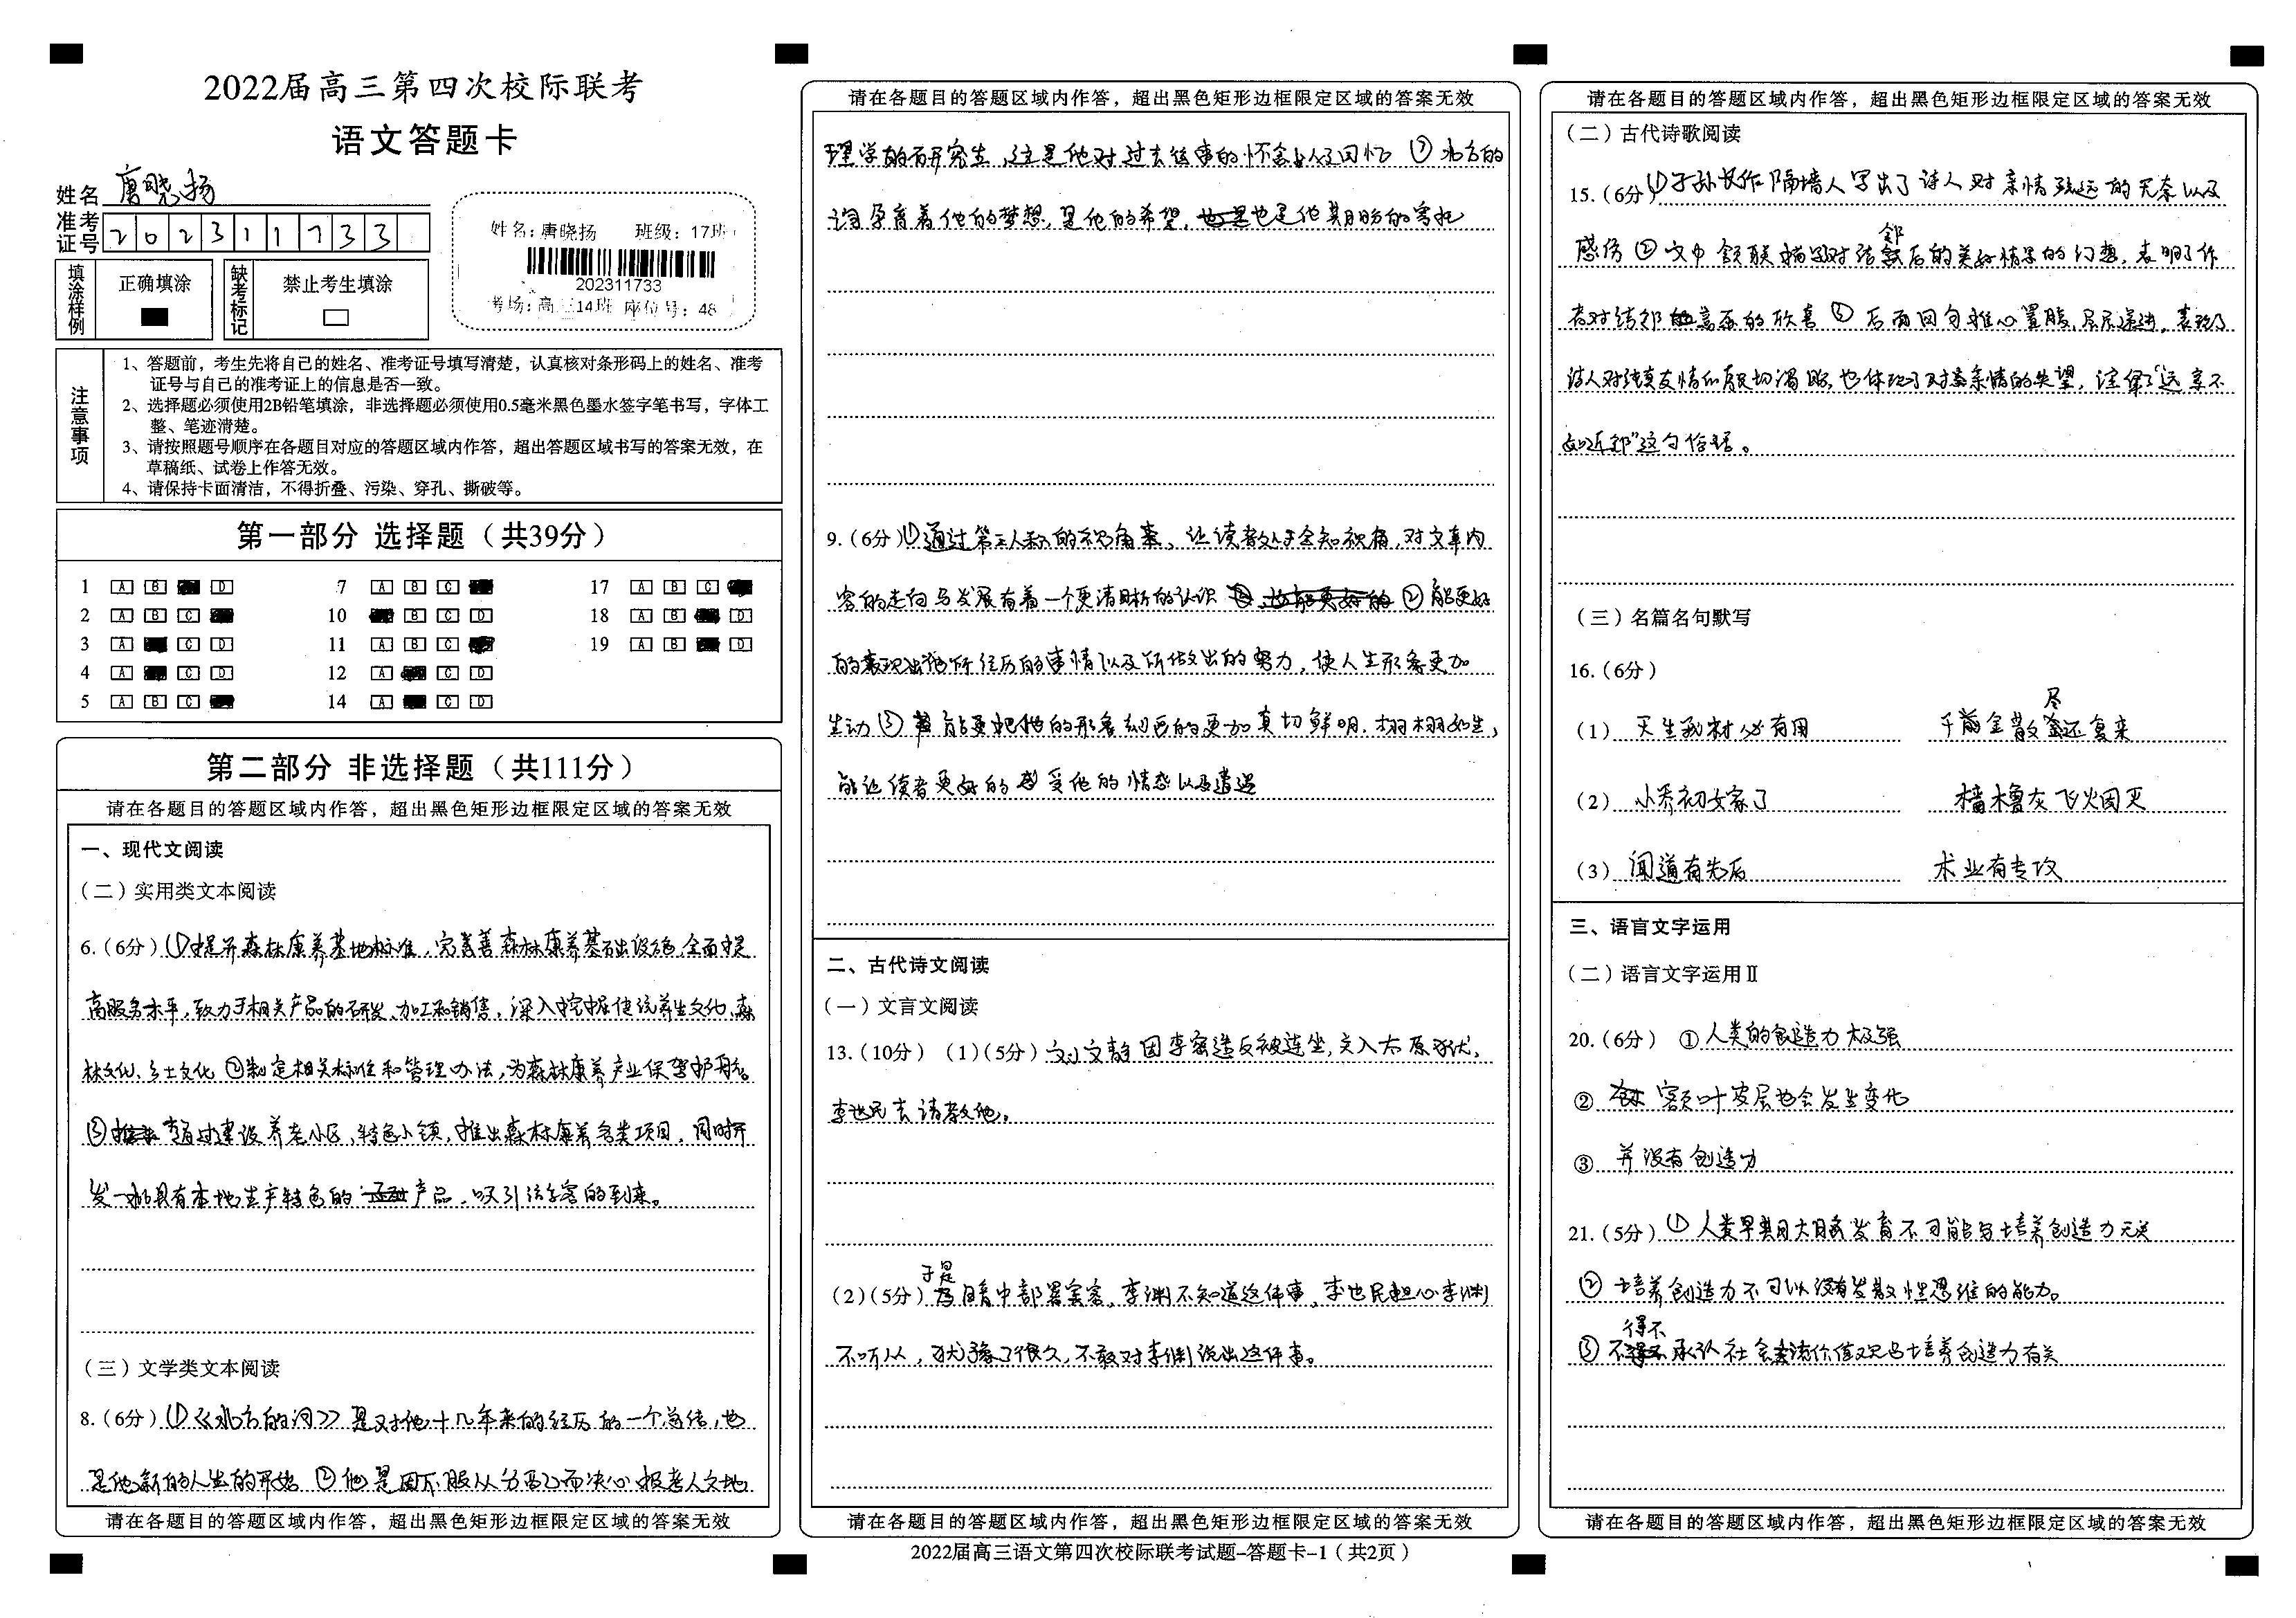 2022届高三第四次校际联考
语文答题卡
姓名 唐晓扬
准考证号 202311733
姓名：唐晓扬 班级：17班
202311733
考场：高三14班 座位号：48
填涂样例 正确填涂 缺考标记 禁止考生填涂
注意事项
1、答题前，考生先将自己的姓名、准考证号填写清楚，认真核对条形码上的姓名、准考
证号与自己的准考证上的信息是否一致。
2、选择题必须使用2B铅笔填涂，非选择题必须使用0.5毫米黑色墨水签字笔书写，字体工
整、笔迹清楚。
3、请按照题号顺序在各题目对应的答题区域内作答，超出答题区域书写的答案无效，在
草稿纸、试卷上作答无效。
4、请保持卡面清洁，不得折叠、污染、穿孔、撕破等。
第一部分 选择题（共39分）
1 A B D 7 A B C 17 A B C
2 A B C 10 B C D 18 A B D
3 A C D 11 A B C 19 A B D
4 A C D 12 A C D
5 A B C 14 A C D
第二部分 非选择题（共111分）
请在各题目的答题区域内作答，超出黑色矩形边框限定区域的答案无效
一、现代文阅读
（二）实用类文本阅读
6.（6分）①提升森林康养基地标准，完善森林康养基础设施，全面提
高服务水平，致力于相关产品的研发、加工和销售，深入挖掘传统养生文化、森
林文化、乡土文化 ②制定相关标准和管理办法，为森林康养产业保驾护航。
③通过建设养老小区、特色小镇，推出森林康养各类项目，同时开
发一批具有本地生产特色的产品，吸引游客的到来。
（三）文学类文本阅读
8.（6分）①《北方的河》是对他十几年来的经历的一个总结，也
是他新的人生的开始 ②他是因不服从分配而决心报考人文地
请在各题目的答题区域内作答，超出黑色矩形边框限定区域的答案无效
请在各题目的答题区域内作答，超出黑色矩形边框限定区域的答案无效
理学的研究生，这是他对过去往事的怀念与回忆 ③北方的
河孕育着他的梦想，是他的希望，也是他期盼的寄托
9.（6分）①通过第三人称的视角来，让读者处于全知视角，对文章内
容的走向与发展有着一个更清晰的认识 ②能更好
的表现出他所经历的事情以及所做出的努力，使人生形象更加
生动 ③能更把他的形象刻画的更加真切鲜明，栩栩如生，
能让读者更好的感受他的情感以及遭遇
二、古代诗文阅读
（一）文言文阅读
13.（10分）（1）（5分）刘文静因李密造反被连坐，关入太原牢狱，
李世民去请教他。
（2）（5分）于是暗中部署宾客，李渊不知道这件事，李世民担心李渊
不听从，犹豫了很久，不敢对李渊说出这件事。
请在各题目的答题区域内作答，超出黑色矩形边框限定区域的答案无效
2022届高三语文第四次校际联考试题-答题卡-1（共2页）
请在各题目的答题区域内作答，超出黑色矩形边框限定区域的答案无效
（二）古代诗歌阅读
15.（6分）①子孙长作隔墙人写出了诗人对亲情疏远的无奈以及
感伤 ②文中颔联描写对结邻后的美好情景的幻想，表明了作
者对结邻意愿的欣喜 ③后面四句推心置腹，层层递进，表现了
诗人对纯真友情的殷切渴盼，也体现了对亲情的失望，诠释了“远亲不
如近邻”这句俗语。
（三）名篇名句默写
16.（6分）
（1） 天生我材必有用 千金散尽还复来
（2） 小乔初嫁了 樯橹灰飞烟灭
（3） 闻道有先后 术业有专攻
三、语言文字运用
（二）语言文字运用Ⅱ
20.（6分） ①人类的创造力极强
② 额叶皮层也会发生变化
③ 并没有创造力
21.（5分）①人类早期大脑发育不可能与培养创造力无关
②培养创造力不可以没有发散性思维的能力。
③不得不承认社会价值观与培养创造力有关
请在各题目的答题区域内作答，超出黑色矩形边框限定区域的答案无效